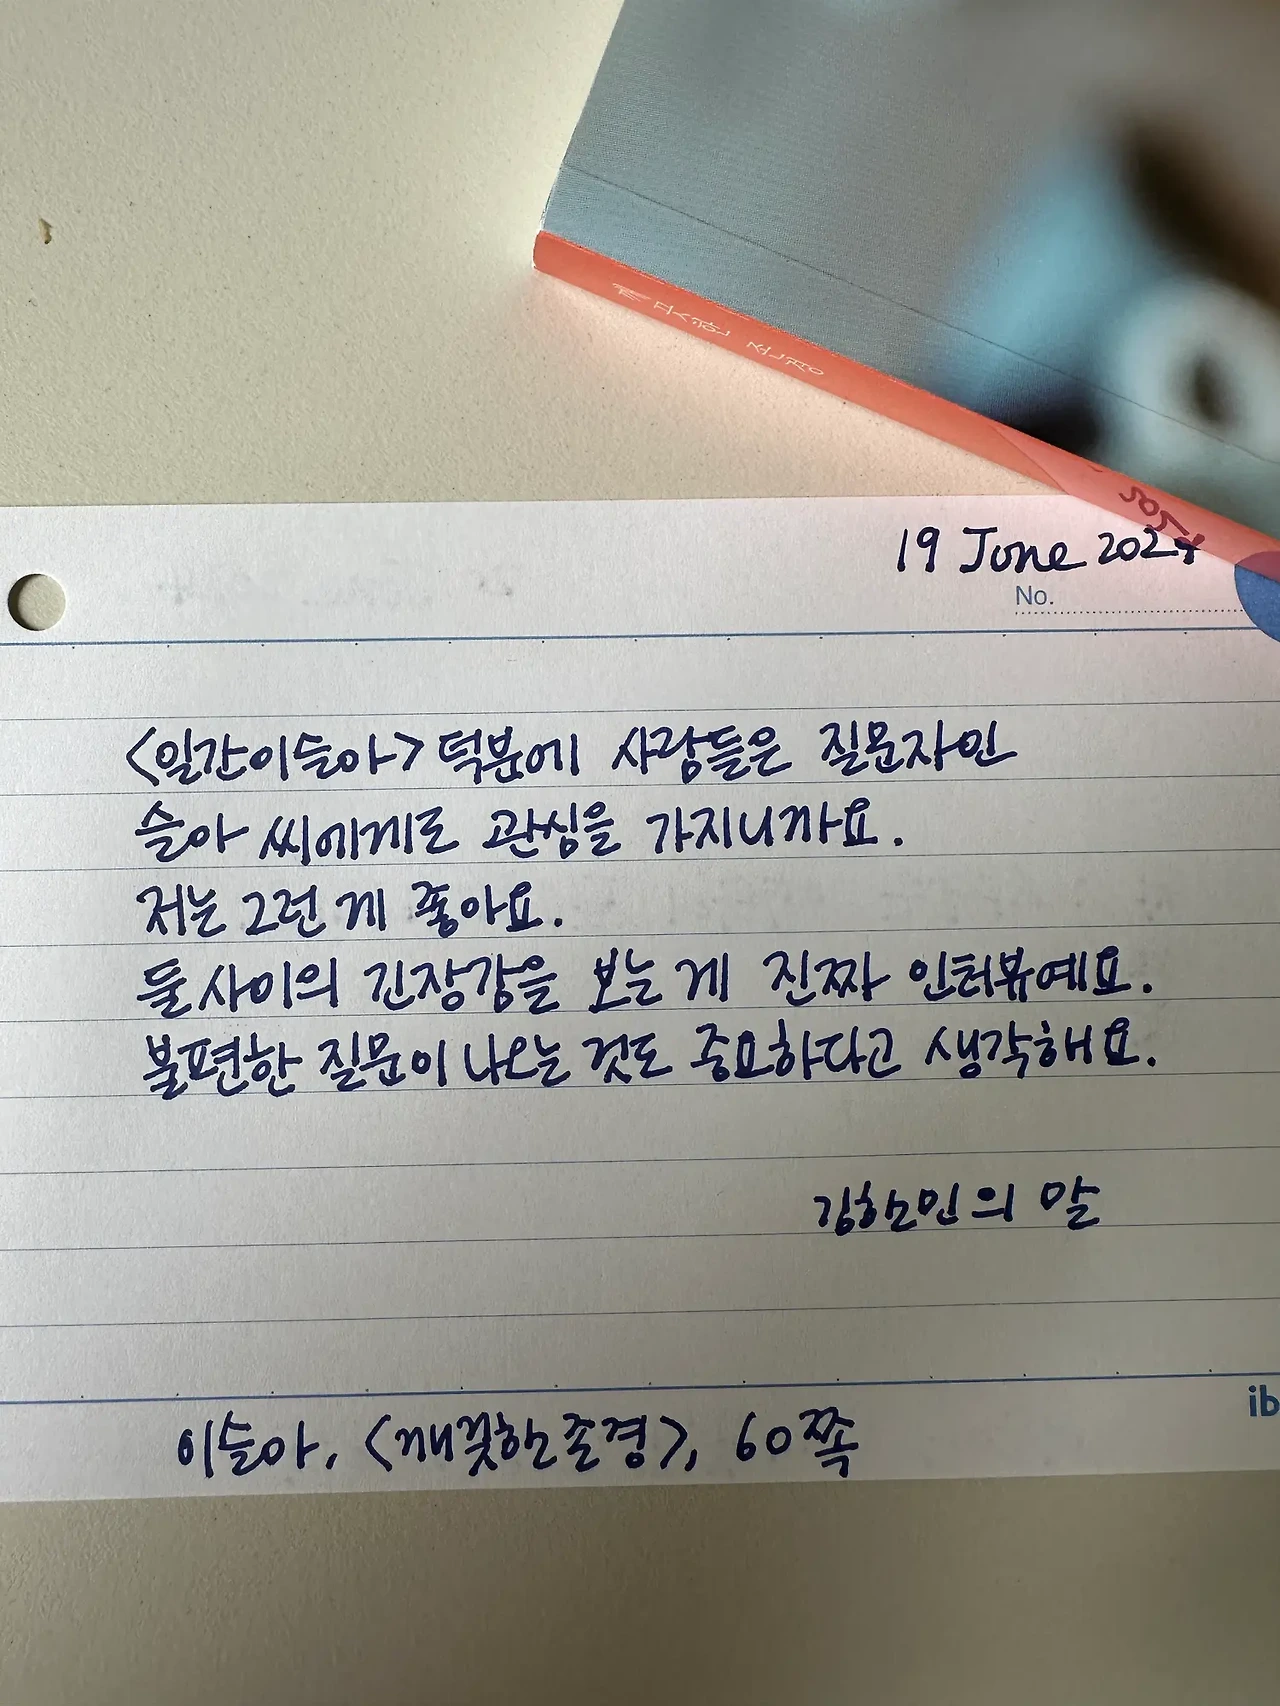 19 June 2024
No.
<일간이슬아> 덕분에 사람들은 질문자인
슬아 씨에게도 관심을 가지니까요.
저는 그런 게 좋아요.
둘 사이의 긴장감을 보는 게 진짜 인터뷰예요.
불편한 질문이 나오는 것도 중요하다고 생각해요.
김한민의 말
ib
이슬아, <깨끗한 존경>, 60쪽